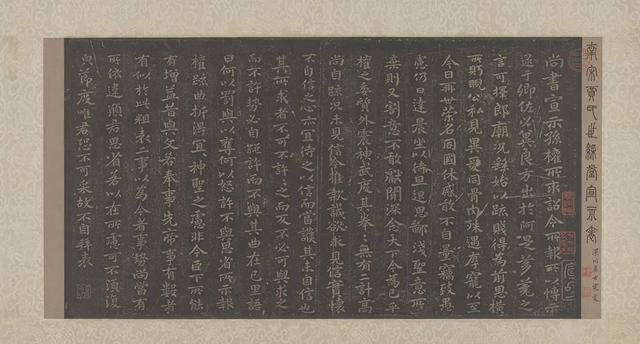 南宋賈氏世綵堂宣示表
尚書宣示孫權所求詔令所報所以博示
逮于卿佐必冀良方出於阿是芻蕘之
言可擇郎廟況繇始以疏賤得為前恩橫
所盻睨公私見異愛同骨肉殊遇厚寵以至
今日再世榮名同國休慼敢不自量竊致愚
慮仍日達晨坐以待旦退思鄙淺聖意所
棄則又割意不敢獻聞深念天下今為已平
權之委質外震神武度其拳拳無有二計高
尚自疏況未見信今推款誠欲求見信實懷
不自信之心亦宜待之以信而當護其未自信也
其所求者不可不許許之而反不必可與求之
而不許勢必自絕許而不與其曲在己里語
曰何以罰與以奪何以怒許不與思省所示報
權疏曲折得宜宜神聖之慮非今臣下所能
有增益昔與文若奉事先帝事有數者
有似於此粗表二事以為今者事勢尚當有
所依違願君思省若以在所慮可不須復
皃節度唯君恐不可采故不自拜表